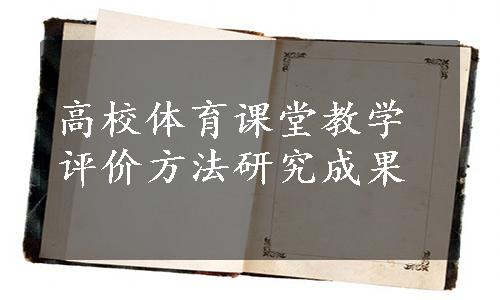 高校体育课堂教学
评价方法研究成果